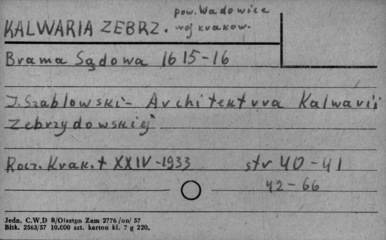 pow. Wadowice
KALWARIA ZEBRZ. woj krakow.
Brama Sądowa 1615-16
J. Szablowski - Architektura Kalwarii
Zebrzydowskiej
Rocz. Krak. t XXIV-1933 str 40-41
42-66
Jedn. C.W.D 8/Olsztyn Zam 2776/on/57
Bltk. 2563/57 10.000 szt. karton kl. 7 g 220.